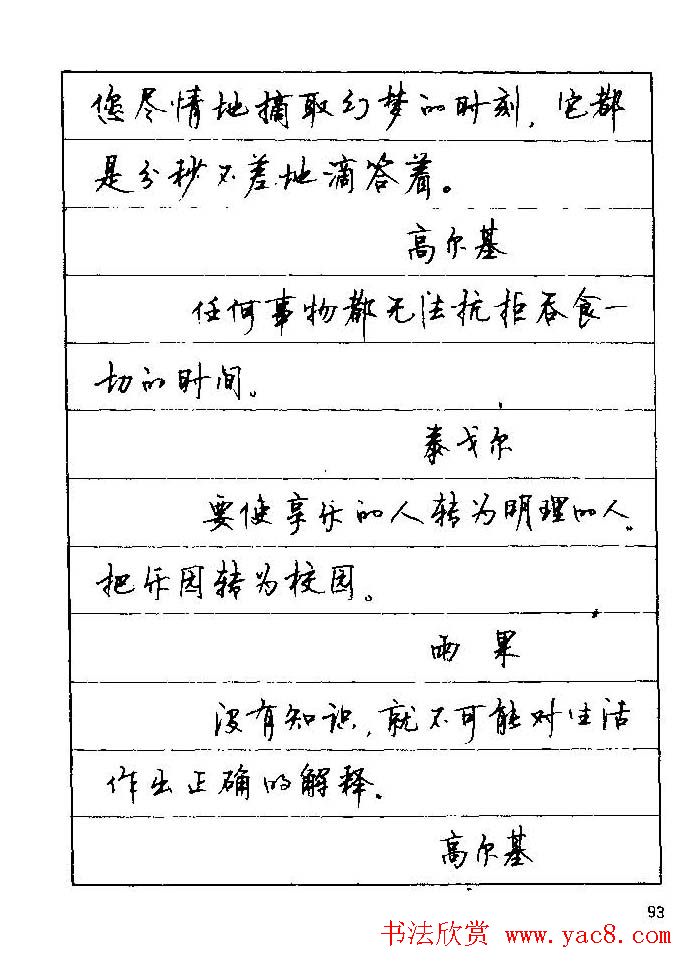 您尽情地摘取幻梦的时刻，它都
是分秒不差地滴答着。
高尔基
任何事物都无法抗拒吞食一
切的时间。
泰戈尔
要使享乐的人转为明理的人，
把乐园转为校园。
雨果
没有知识，就不可能对生活
作出正确的解释。
高尔基
93
书法欣赏 www.yac8.com